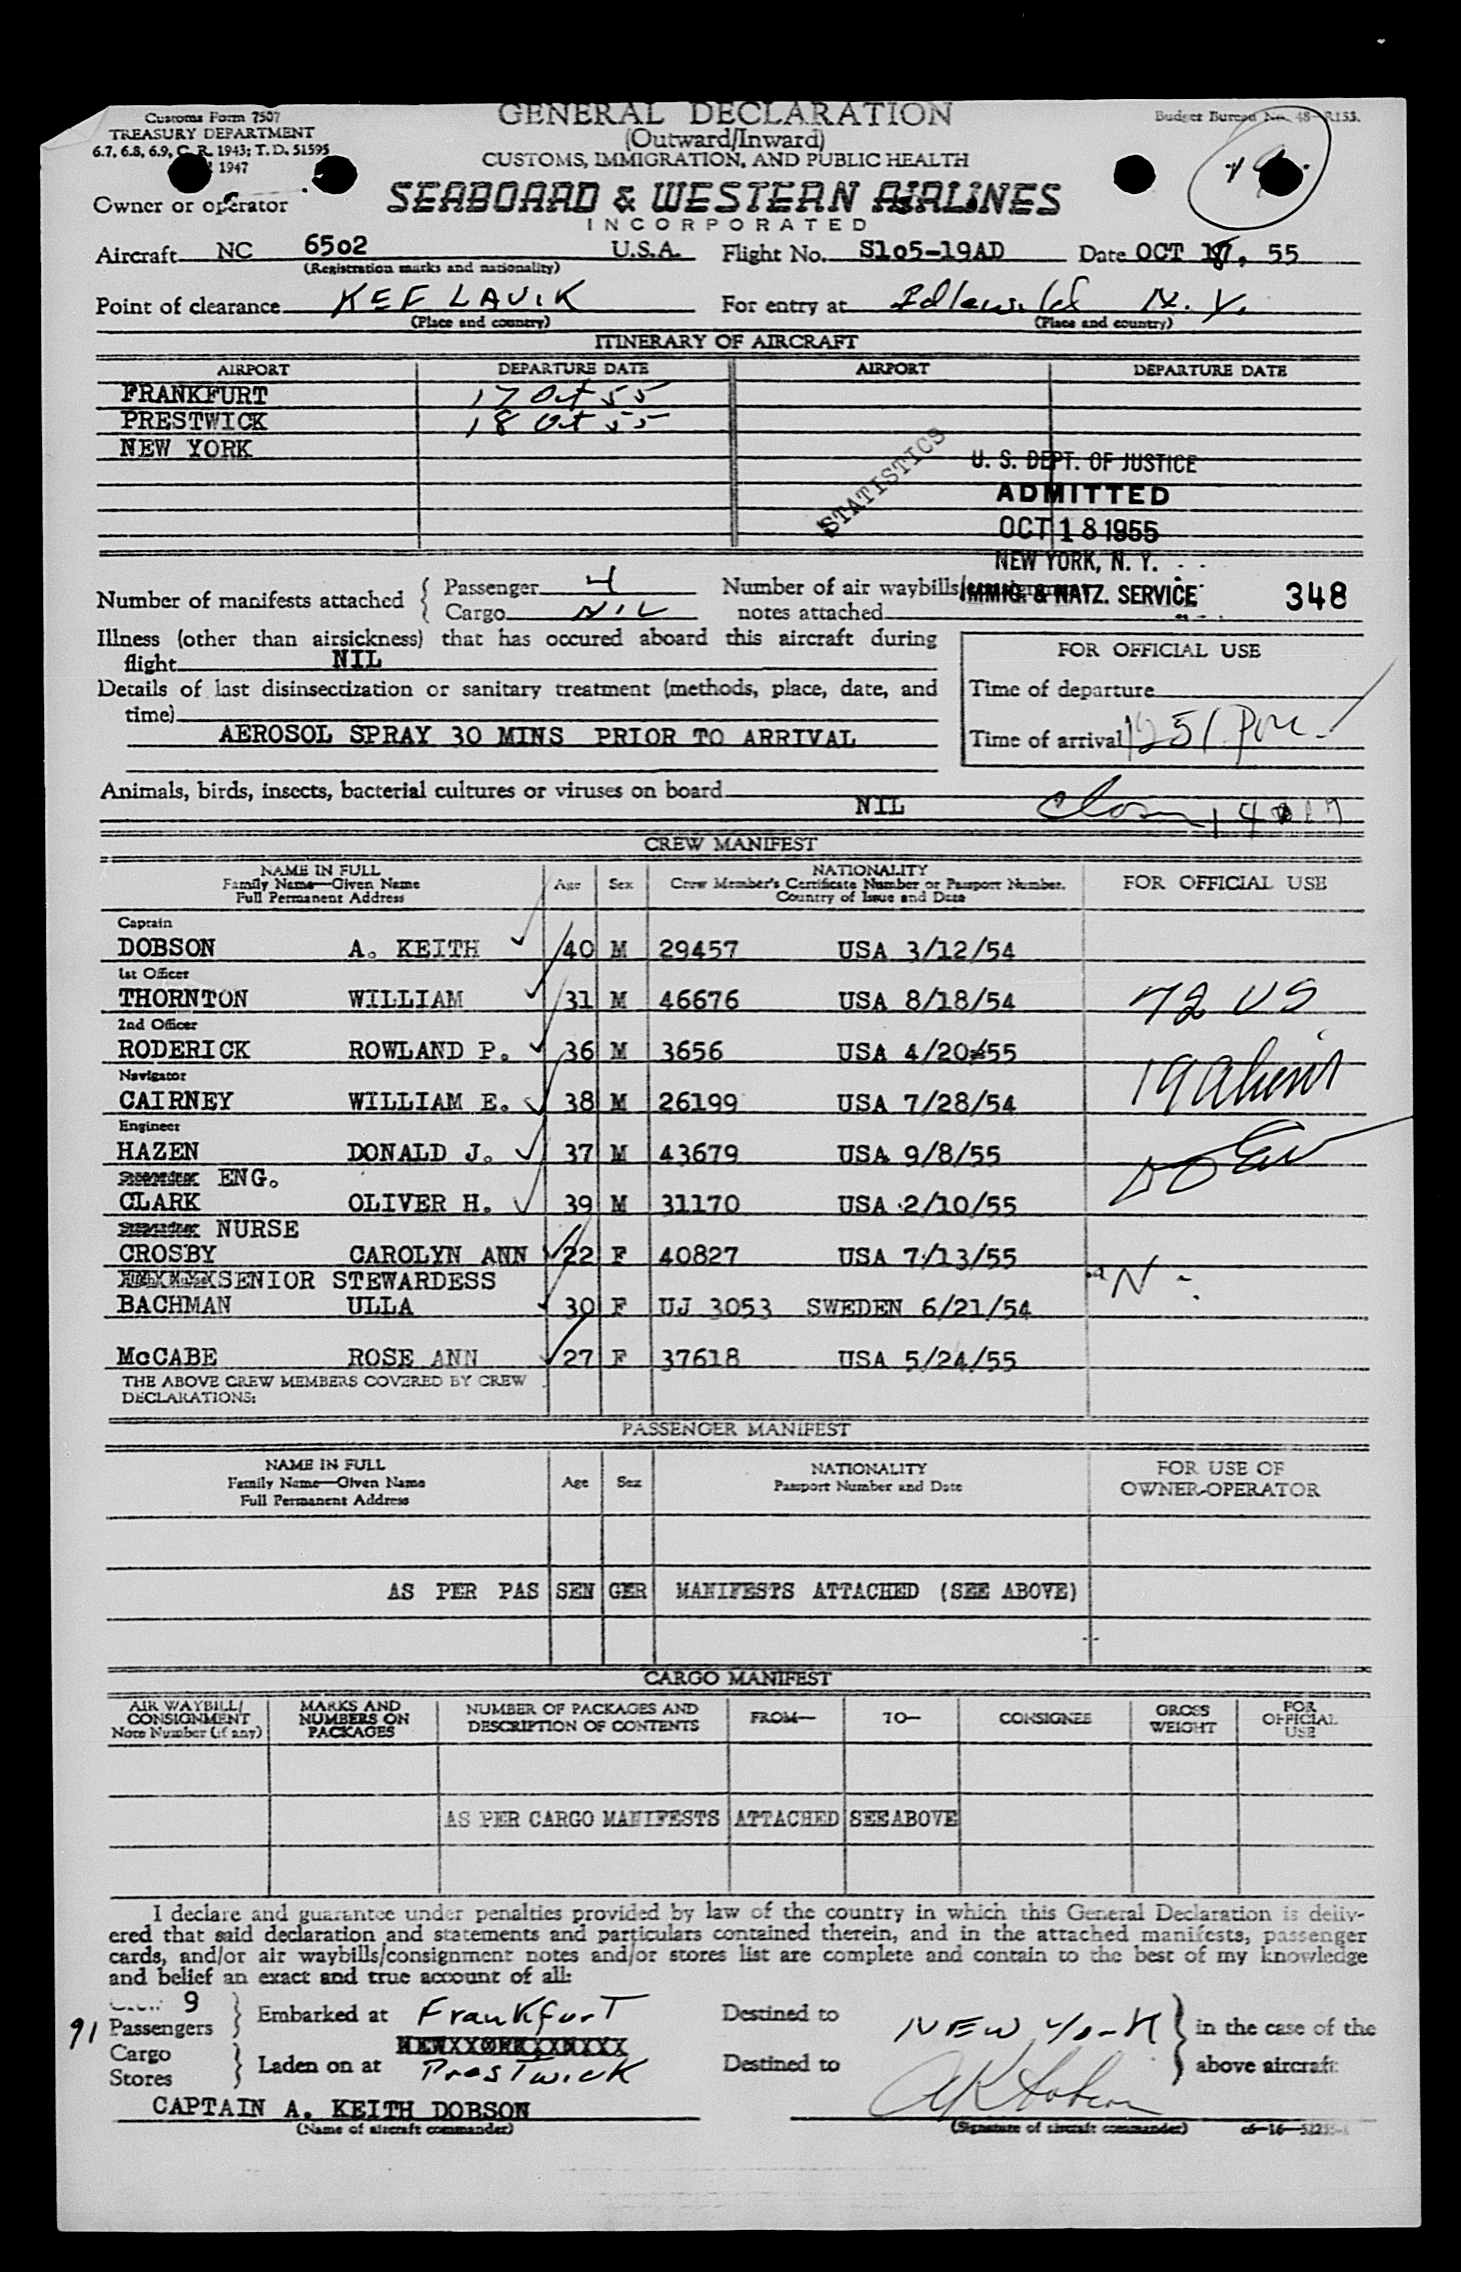 Customs Form 7507
TREASURY DEPARTMENT
6.7, 6.8, 6.9, C. R. 1943; T. D. 51595
1947
GENERAL DECLARATION
(Outward/Inward)
CUSTOMS, IMMIGRATION, AND PUBLIC HEALTH
Budget Bureau No. 48-R153.
Owner or operator
SEABOARD & WESTERN AIRLINES
INCORPORATED
Aircraft NC 6502 U.S.A. Flight No. S105-19AD Date OCT 18, 55
(Registration marks and nationality)
Point of clearance KEFLAVIK For entry at Idlewild N.Y.
(Place and country) (Place and country)
ITINERARY OF AIRCRAFT
AIRPORT DEPARTURE DATE AIRPORT DEPARTURE DATE
FRANKFURT 17 Oct 55
PRESTWICK 18 Oct 55
NEW YORK
STATISTICS
U. S. DEPT. OF JUSTICE
ADMITTED
OCT 18 1955
NEW YORK, N. Y.
IMMIG. & NATZ. SERVICE 348
Number of manifests attached { Passenger 4 Number of air waybills/
Cargo NIL notes attached
Illness (other than airsickness) that has occured aboard this aircraft during
flight NIL
FOR OFFICIAL USE
Details of last disinsectization or sanitary treatment (methods, place, date, and
time)
AEROSOL SPRAY 30 MINS PRIOR TO ARRIVAL
Time of departure
Time of arrival 1251 pm
Animals, birds, insects, bacterial cultures or viruses on board
NIL
CREW MANIFEST
NAME IN FULL
Family Name—Given Name
Full Permanent Address
Age Sex
NATIONALITY
Crew Member's Certificate Number or Passport Number.
Country of Issue and Date
FOR OFFICIAL USE
Captain
DOBSON A. KEITH 40 M 29457 USA 3/12/54
1st Officer
THORNTON WILLIAM 31 M 46676 USA 8/18/54
72 US
2nd Officer
RODERICK ROWLAND P. 36 M 3656 USA 4/20/55
19 Aliens
Navigator
CAIRNEY WILLIAM E. 38 M 26199 USA 7/28/54
Engineer
HAZEN DONALD J. 37 M 43679 USA 9/8/55
ENG.
CLARK OLIVER H. 39 M 31170 USA 2/10/55
NURSE
CROSBY CAROLYN ANN 22 F 40827 USA 7/13/55
SENIOR STEWARDESS
BACHMAN ULLA 30 F UJ 3053 SWEDEN 6/21/54
McCABE ROSE ANN 27 F 37618 USA 5/24/55
THE ABOVE CREW MEMBERS COVERED BY CREW
DECLARATIONS:
PASSENGER MANIFEST
NAME IN FULL
Family Name—Given Name
Full Permanent Address
Age Sex
NATIONALITY
Passport Number and Date
FOR USE OF
OWNER-OPERATOR
AS PER PAS SEN GER MANIFESTS ATTACHED (SEE ABOVE)
CARGO MANIFEST
AIR WAYBILL/
CONSIGNMENT
Note Number (if any)
MARKS AND
NUMBERS ON
PACKAGES
NUMBER OF PACKAGES AND
DESCRIPTION OF CONTENTS
FROM— TO— CONSIGNEE
GROSS
WEIGHT
FOR
OFFICIAL
USE
AS PER CARGO MANIFESTS ATTACHED SEE ABOVE
I declare and guarantee under penalties provided by law of the country in which this General Declaration is deliv-
ered that said declaration and statements and particulars contained therein, and in the attached manifests, passenger
cards, and/or air waybills/consignment notes and/or stores list are complete and contain to the best of my knowledge
and belief an exact and true account of all:
Crew 9
91 Passengers Embarked at Frankfurt Destined to NEW York in the case of the
Cargo
Stores Laden on at Prestwick Destined to above aircraft:
CAPTAIN A. KEITH DOBSON AK Dobson
(Name of aircraft commander) (Signature of aircraft commander)